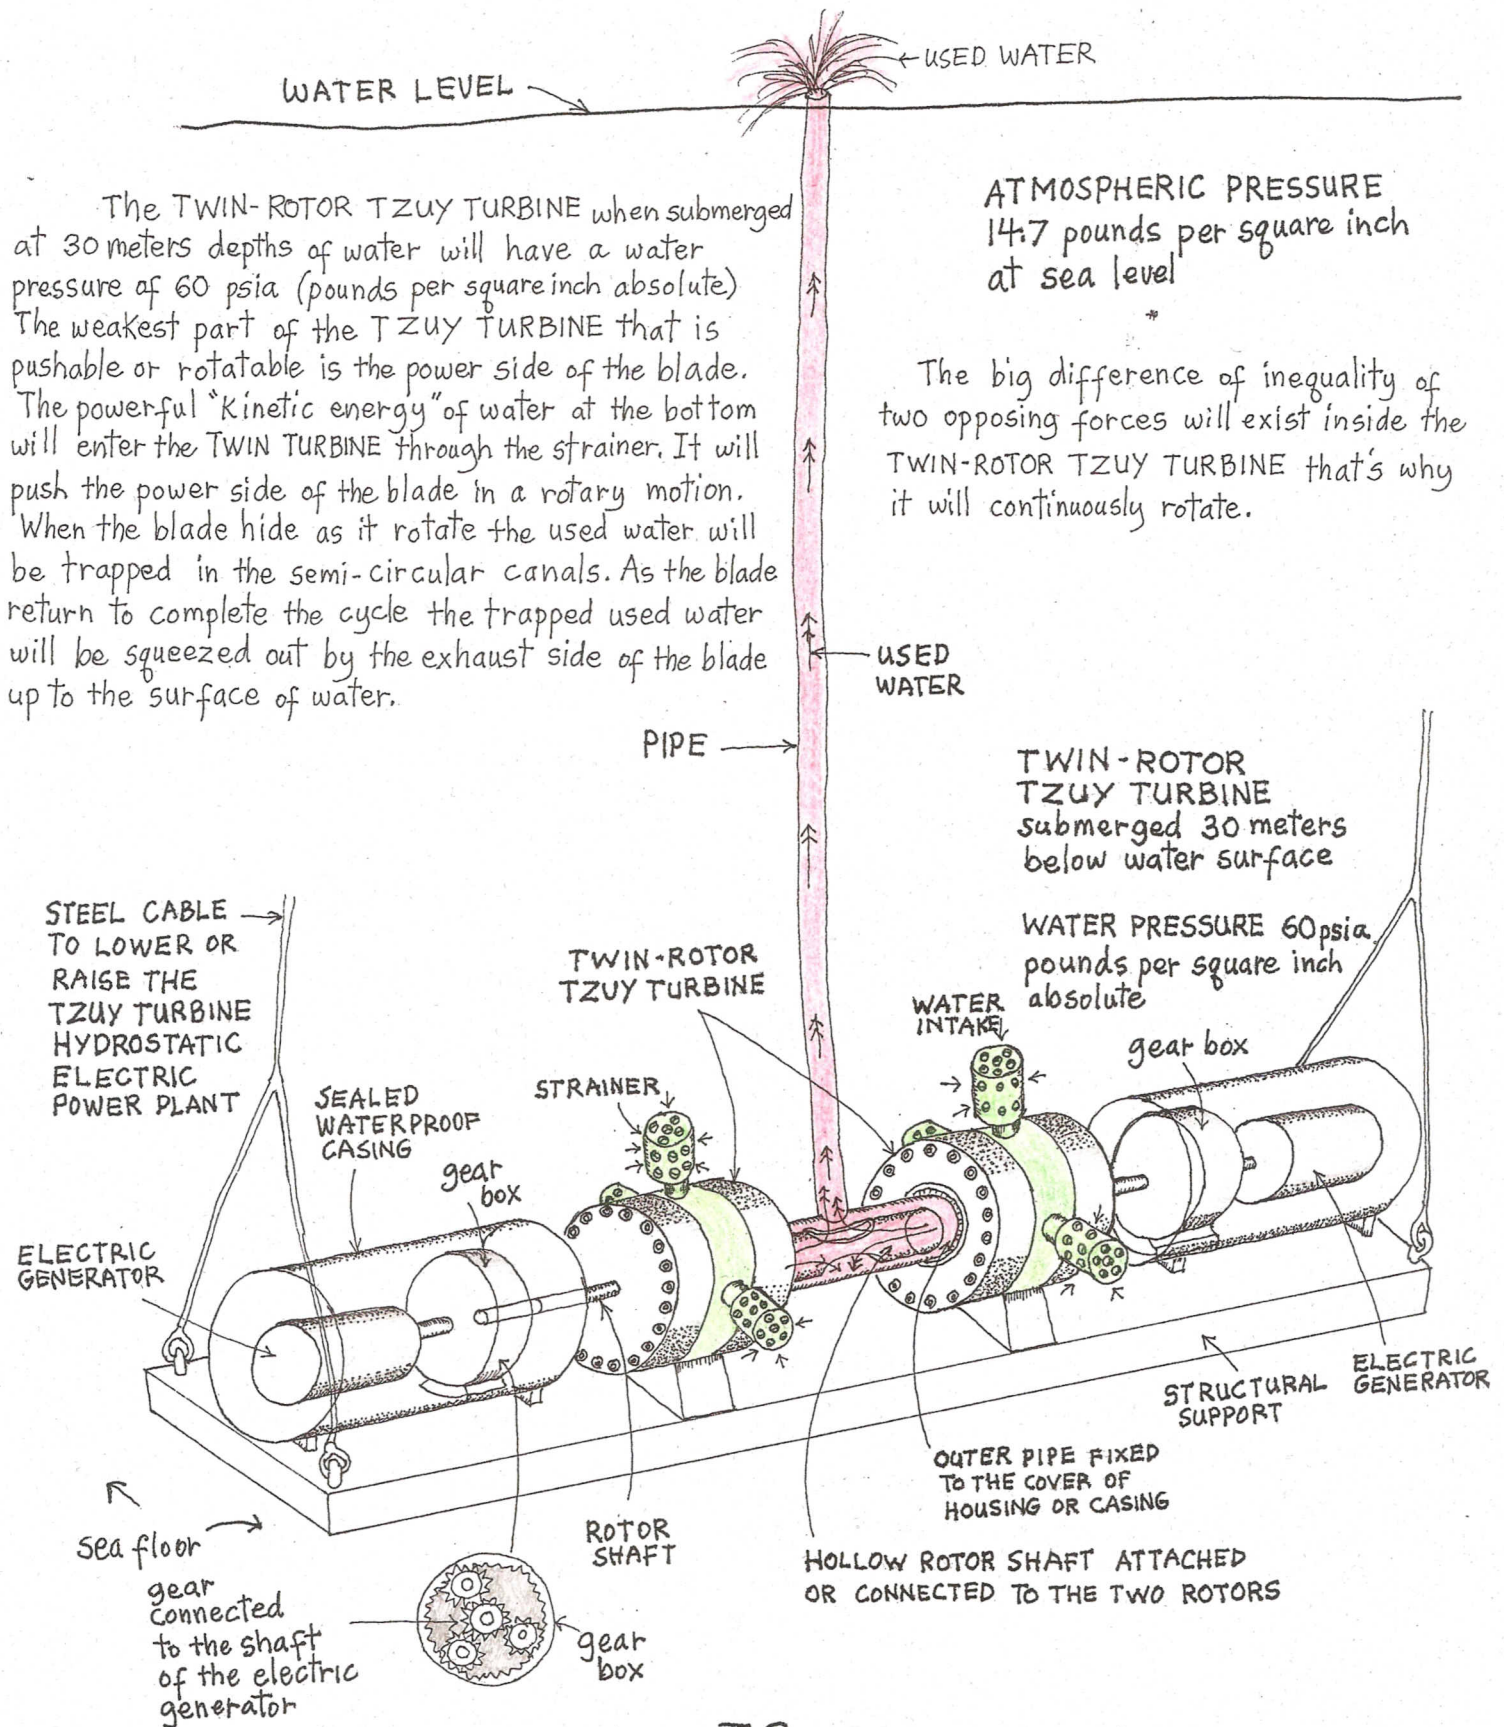 ← USED WATER
WATER LEVEL
The TWIN-ROTOR TZUY TURBINE when submerged
at 30 meters depths of water will have a water
pressure of 60 psia (pounds per square inch absolute)
The weakest part of the TZUY TURBINE that is
pushable or rotatable is the power side of the blade.
The powerful "Kinetic energy" of water at the bottom
will enter the TWIN TURBINE through the strainer. It will
push the power side of the blade in a rotary motion.
When the blade hide as it rotate the used water will
be trapped in the semi-circular canals. As the blade
return to complete the cycle the trapped used water
will be squeezed out by the exhaust side of the blade
up to the surface of water.
ATMOSPHERIC PRESSURE
14.7 pounds per square inch
at sea level
*
The big difference of inequality of
two opposing forces will exist inside the
TWIN-ROTOR TZUY TURBINE that's why
it will continuously rotate.
USED
WATER
PIPE
TWIN-ROTOR
TZUY TURBINE
submerged 30 meters
below water surface
WATER PRESSURE 60psia
pounds per square inch
absolute
STEEL CABLE
TO LOWER OR
RAISE THE
TZUY TURBINE
HYDROSTATIC
ELECTRIC
POWER PLANT
TWIN-ROTOR
TZUY TURBINE
WATER
INTAKE
gear box
STRAINER
SEALED
WATERPROOF
CASING
gear
box
ELECTRIC
GENERATOR
ELECTRIC
GENERATOR
STRUCTURAL
SUPPORT
OUTER PIPE FIXED
TO THE COVER OF
HOUSING OR CASING
ROTOR
SHAFT
HOLLOW ROTOR SHAFT ATTACHED
OR CONNECTED TO THE TWO ROTORS
sea floor
gear
connected
to the shaft
of the electric
generator
gear
box